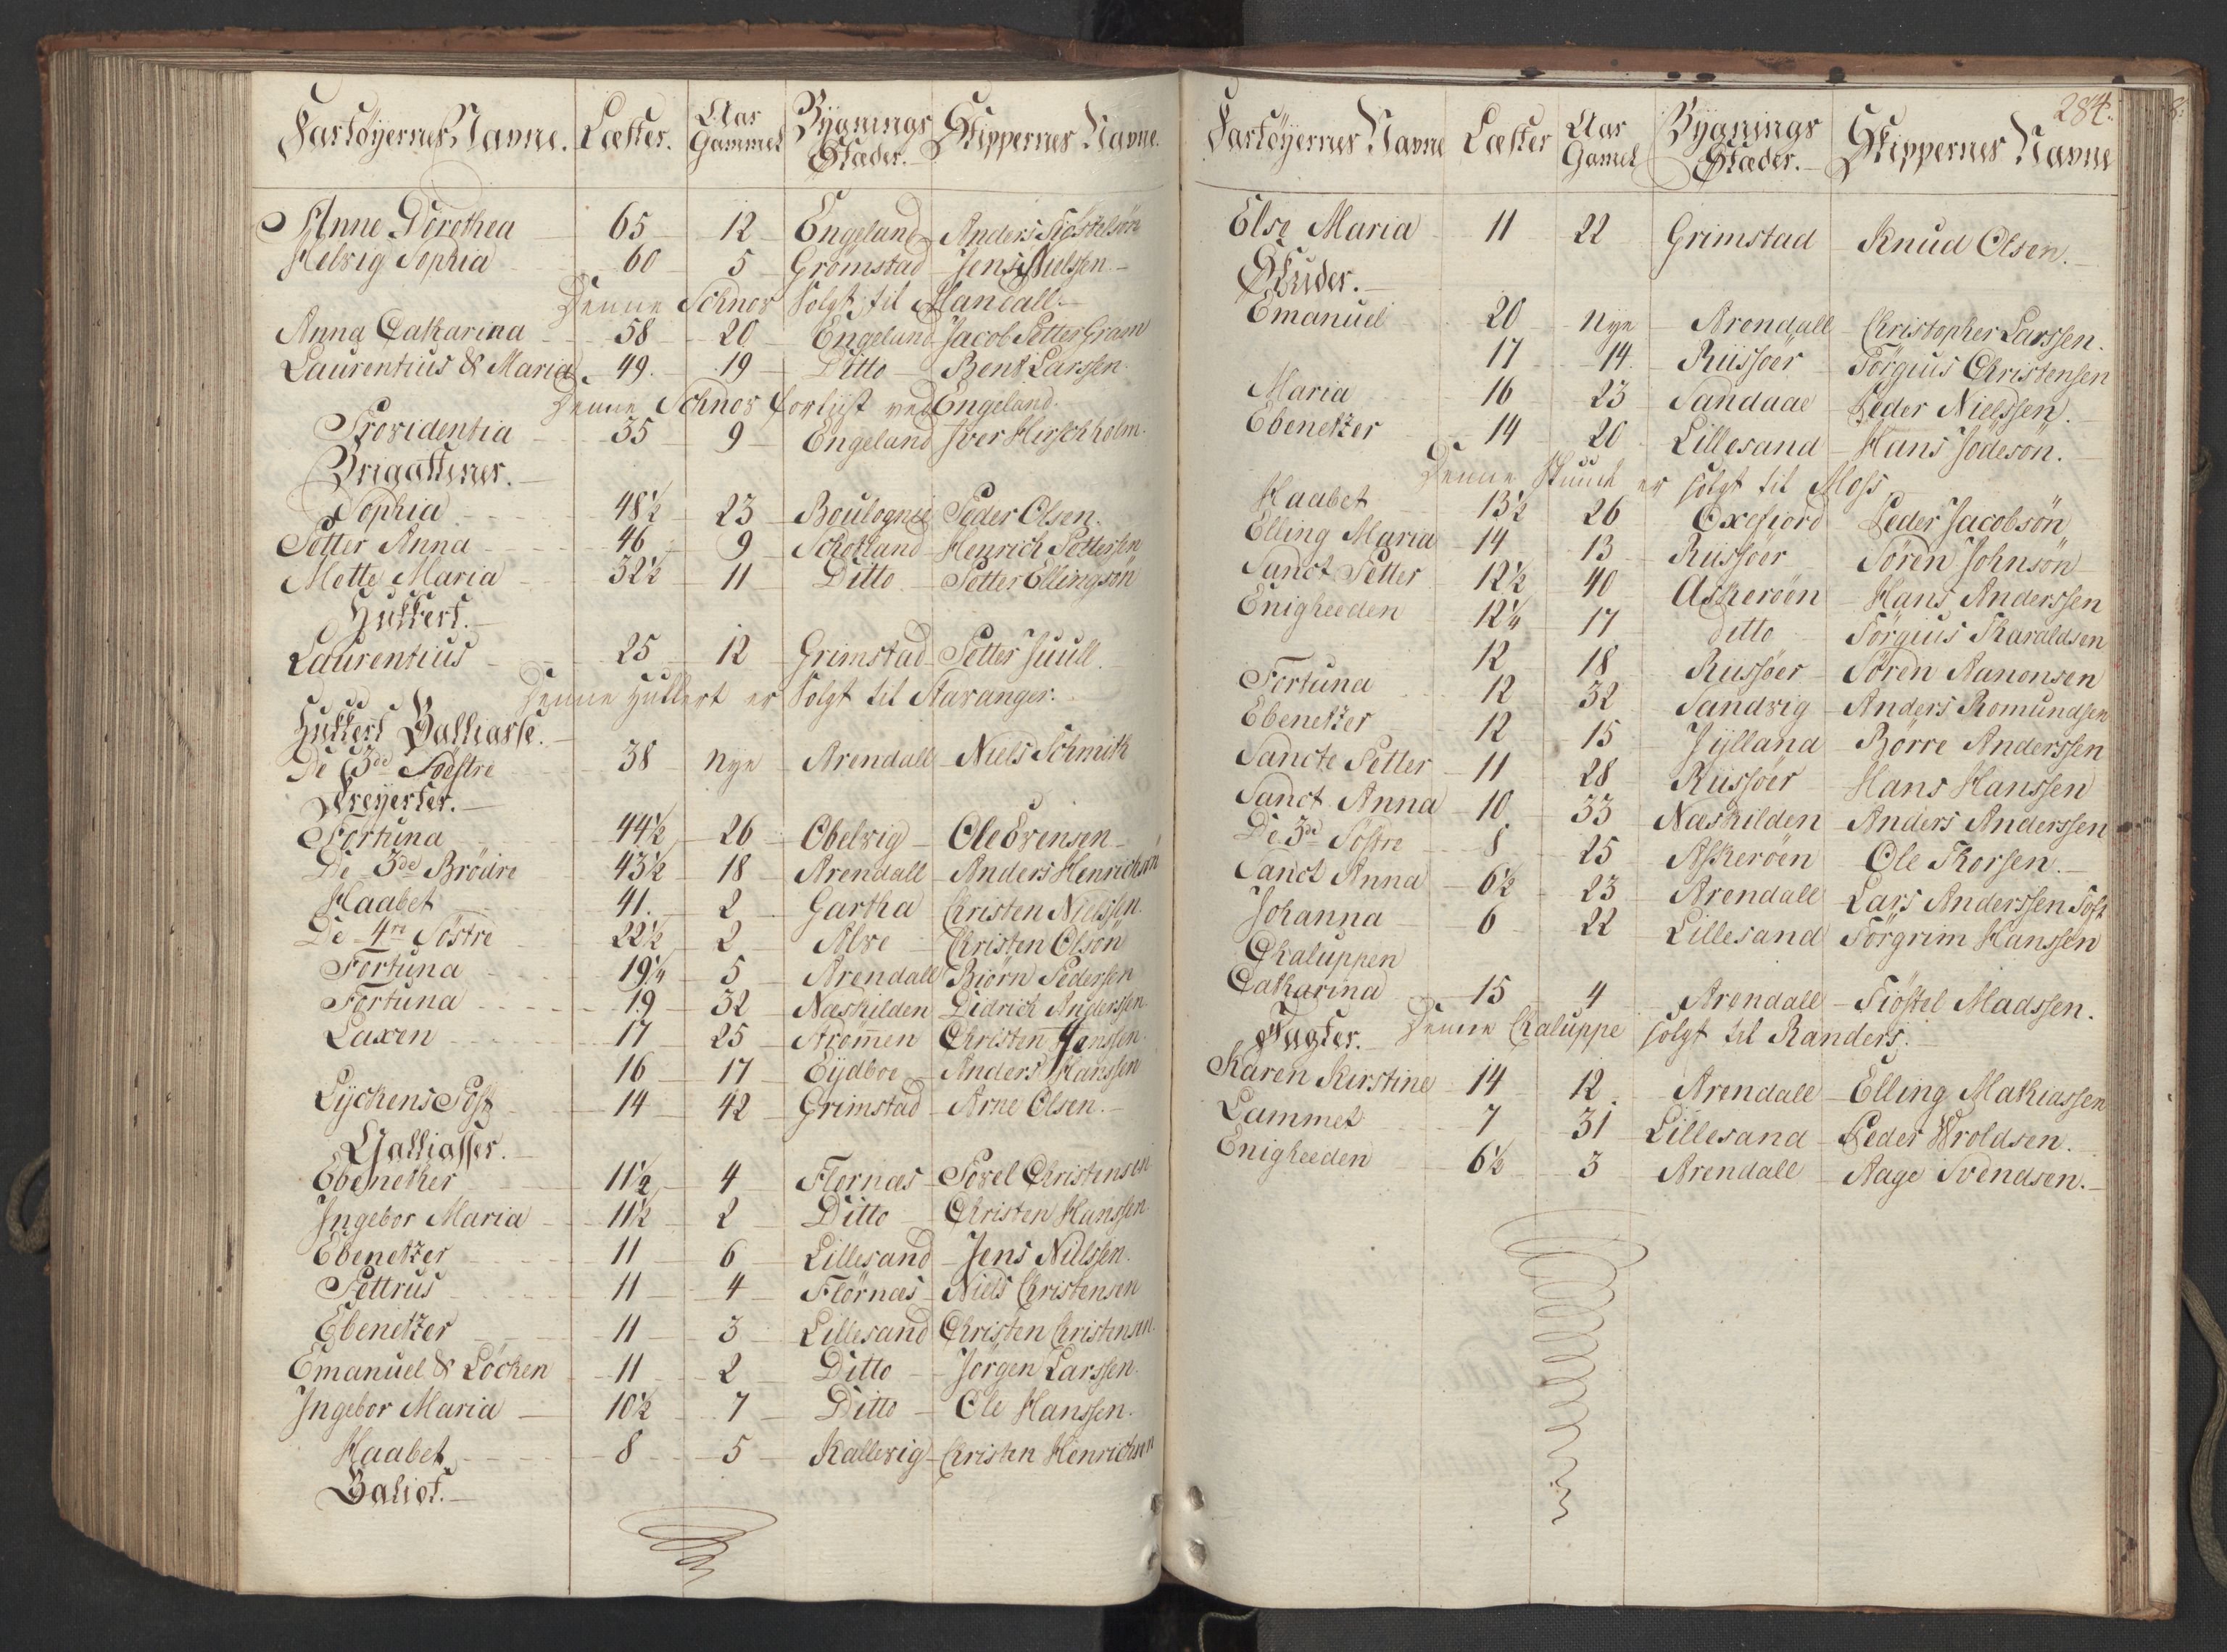 Fartöyernes Navne. Læster. Aar Gammel Bygnings Stæder. Skippernes Navne.
Anne Dorothea 65 12 Engeland Anders Tiöstelsön
Helvig Sophia 60 5 Grömstad Jens Nielssen.
Denne Schnov Solgt til Mandall.
Anna Catharina 58 20 Engeland Jacob Petter Gram
Laurentius & Maria 49. 19 Ditto Bent Larssen.
Denne Schnov forliist ved Engeland.
Providentia 35 9 Engeland Iver Hirschholm.
Brigattiner.
Sophia 48½ 23 Boulognie Peder Olsen.
Petter Anna 46 9 Schotland Henrich Pettersen
Mette Maria 32½ 11 Ditto Petter Ellingsön
Hukkert.
Laurentius 25 12 Grimstad Petter Juull.
Denne Hukkert er Solgt til Stavanger.
Hukkert Galliasse.
De 3de Söestre 38 nye Arendall Niels Schmith
Kreyerter.
Fortuna 44½ 26 Obelvig Ole Evensen
De 3de Brödre 43½ 18 Arendall Anders Henrichsön
Haabet 41. 2 Gartha Christen Nielssen.
De 4re Söstre 22½ 2 Alve Christen Olson
Fortuna 19¼ 5 Arendall Biörn Pedersen
Fortuna 19 32 Næskilden Didrich Anderssen
Laxen 17 25 Strömen Christen Janssen.
16 17 Eydboe Anders Hanssen
Lyckens Post 14 42 Grimstad Arne Olsen.
Galliasser.
Ebenetzer 11½ 4 Flornæs Povel Christensen
Ingebor Maria 11½ 2 Ditto Christen Hanssen.
Ebenetzer 11 6 Lillesand Jens Nielssen.
Pettrus 11 4 Flörnæs Niels Christensen
Ebenetzer 11 3 Lillesand Christen Christensen.
Emanuel & Löcken 11 2 Ditto Jörgen Larssen.
Ingebor Maria 10½ 7 Ditto Ole Hanssen.
Haabet 8 5 Kallevig Christen Henrichsen
Galiot.
284.
Fartöyernes Navne Læster Aar Gamel Bygnings Stæder. Skippernes Navne
Else Maria 11 22 Grimstad Knud Olsen.
Skuder.
Emanuel 20 nye Arendall Christopher Larssen.
17 14. Riissöer Törgius Christensen
Maria 16 23 Sandaae Peder Nielssen.
Ebenetzer 14 20 Lillesand Hans Jödesön.
Denne Skude er solgt til Moss
Haabet 13½ 26 Oxefiord Peder Jacobsön
Elling Maria 14 13 Riissöer Sören Johnsön
Sanct Petter 12½ 40 Askeröen Hans Anderssen
Enigheeden 12¼ 17 ditto Törgius Tharaldsen
12 18 Russöer Sören Aanonsen
Fortuna 12 32 Sandvig Anders Romundsen
Ebenetzer 12 15 Jylland Börre Anderssen
Sancte Petter 11 28 Riissöer Hans Hanssen
Sanct Anna 10 33 Næskilden Anders Anderssen
De 3de Söstre 8 25 Askeröen Ole Thorsen.
Sanct Anna 6½ 23 Arendall Lars Anderssen
Johanna 6 22 Lillesand Törgrim Hanssen
Chaluppen
Catharina 15 4 Arendall Tiöstel Madssen.
Jagter. Denne Chaluppe solgt til Randers.
Karen Kirstine 14 12 Arendall Elling Mathiassen
Lammet 7 31 Lillesand Peder Wroldsen.
Enigheeden 6½ 3 Arendall Aage Svendsen.